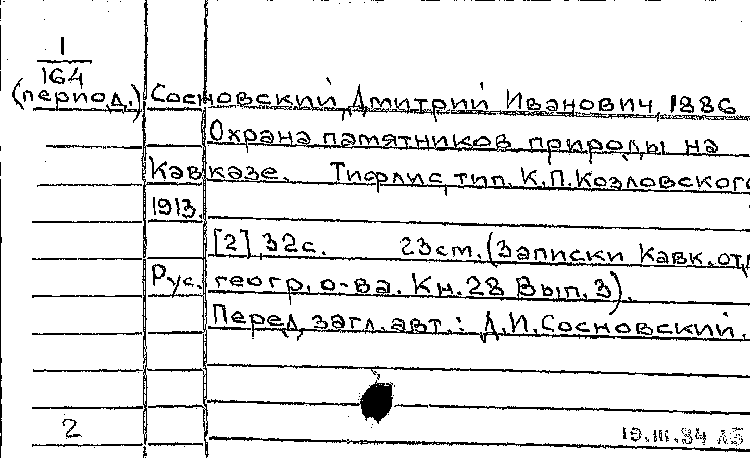 1
164
(период.) Сосновский, Дмитрий Иванович, 1886
Охрана памятников природы на
Кавказе. Тифлис, тип. К.П.Козловского
1913.
[2], 32с. 23см. (Записки Кавк. отд
Рус. геогр. о-ва. Кн. 28 Вып. 3).
Перед загл. авт.: Д.И.Сосновский.
2